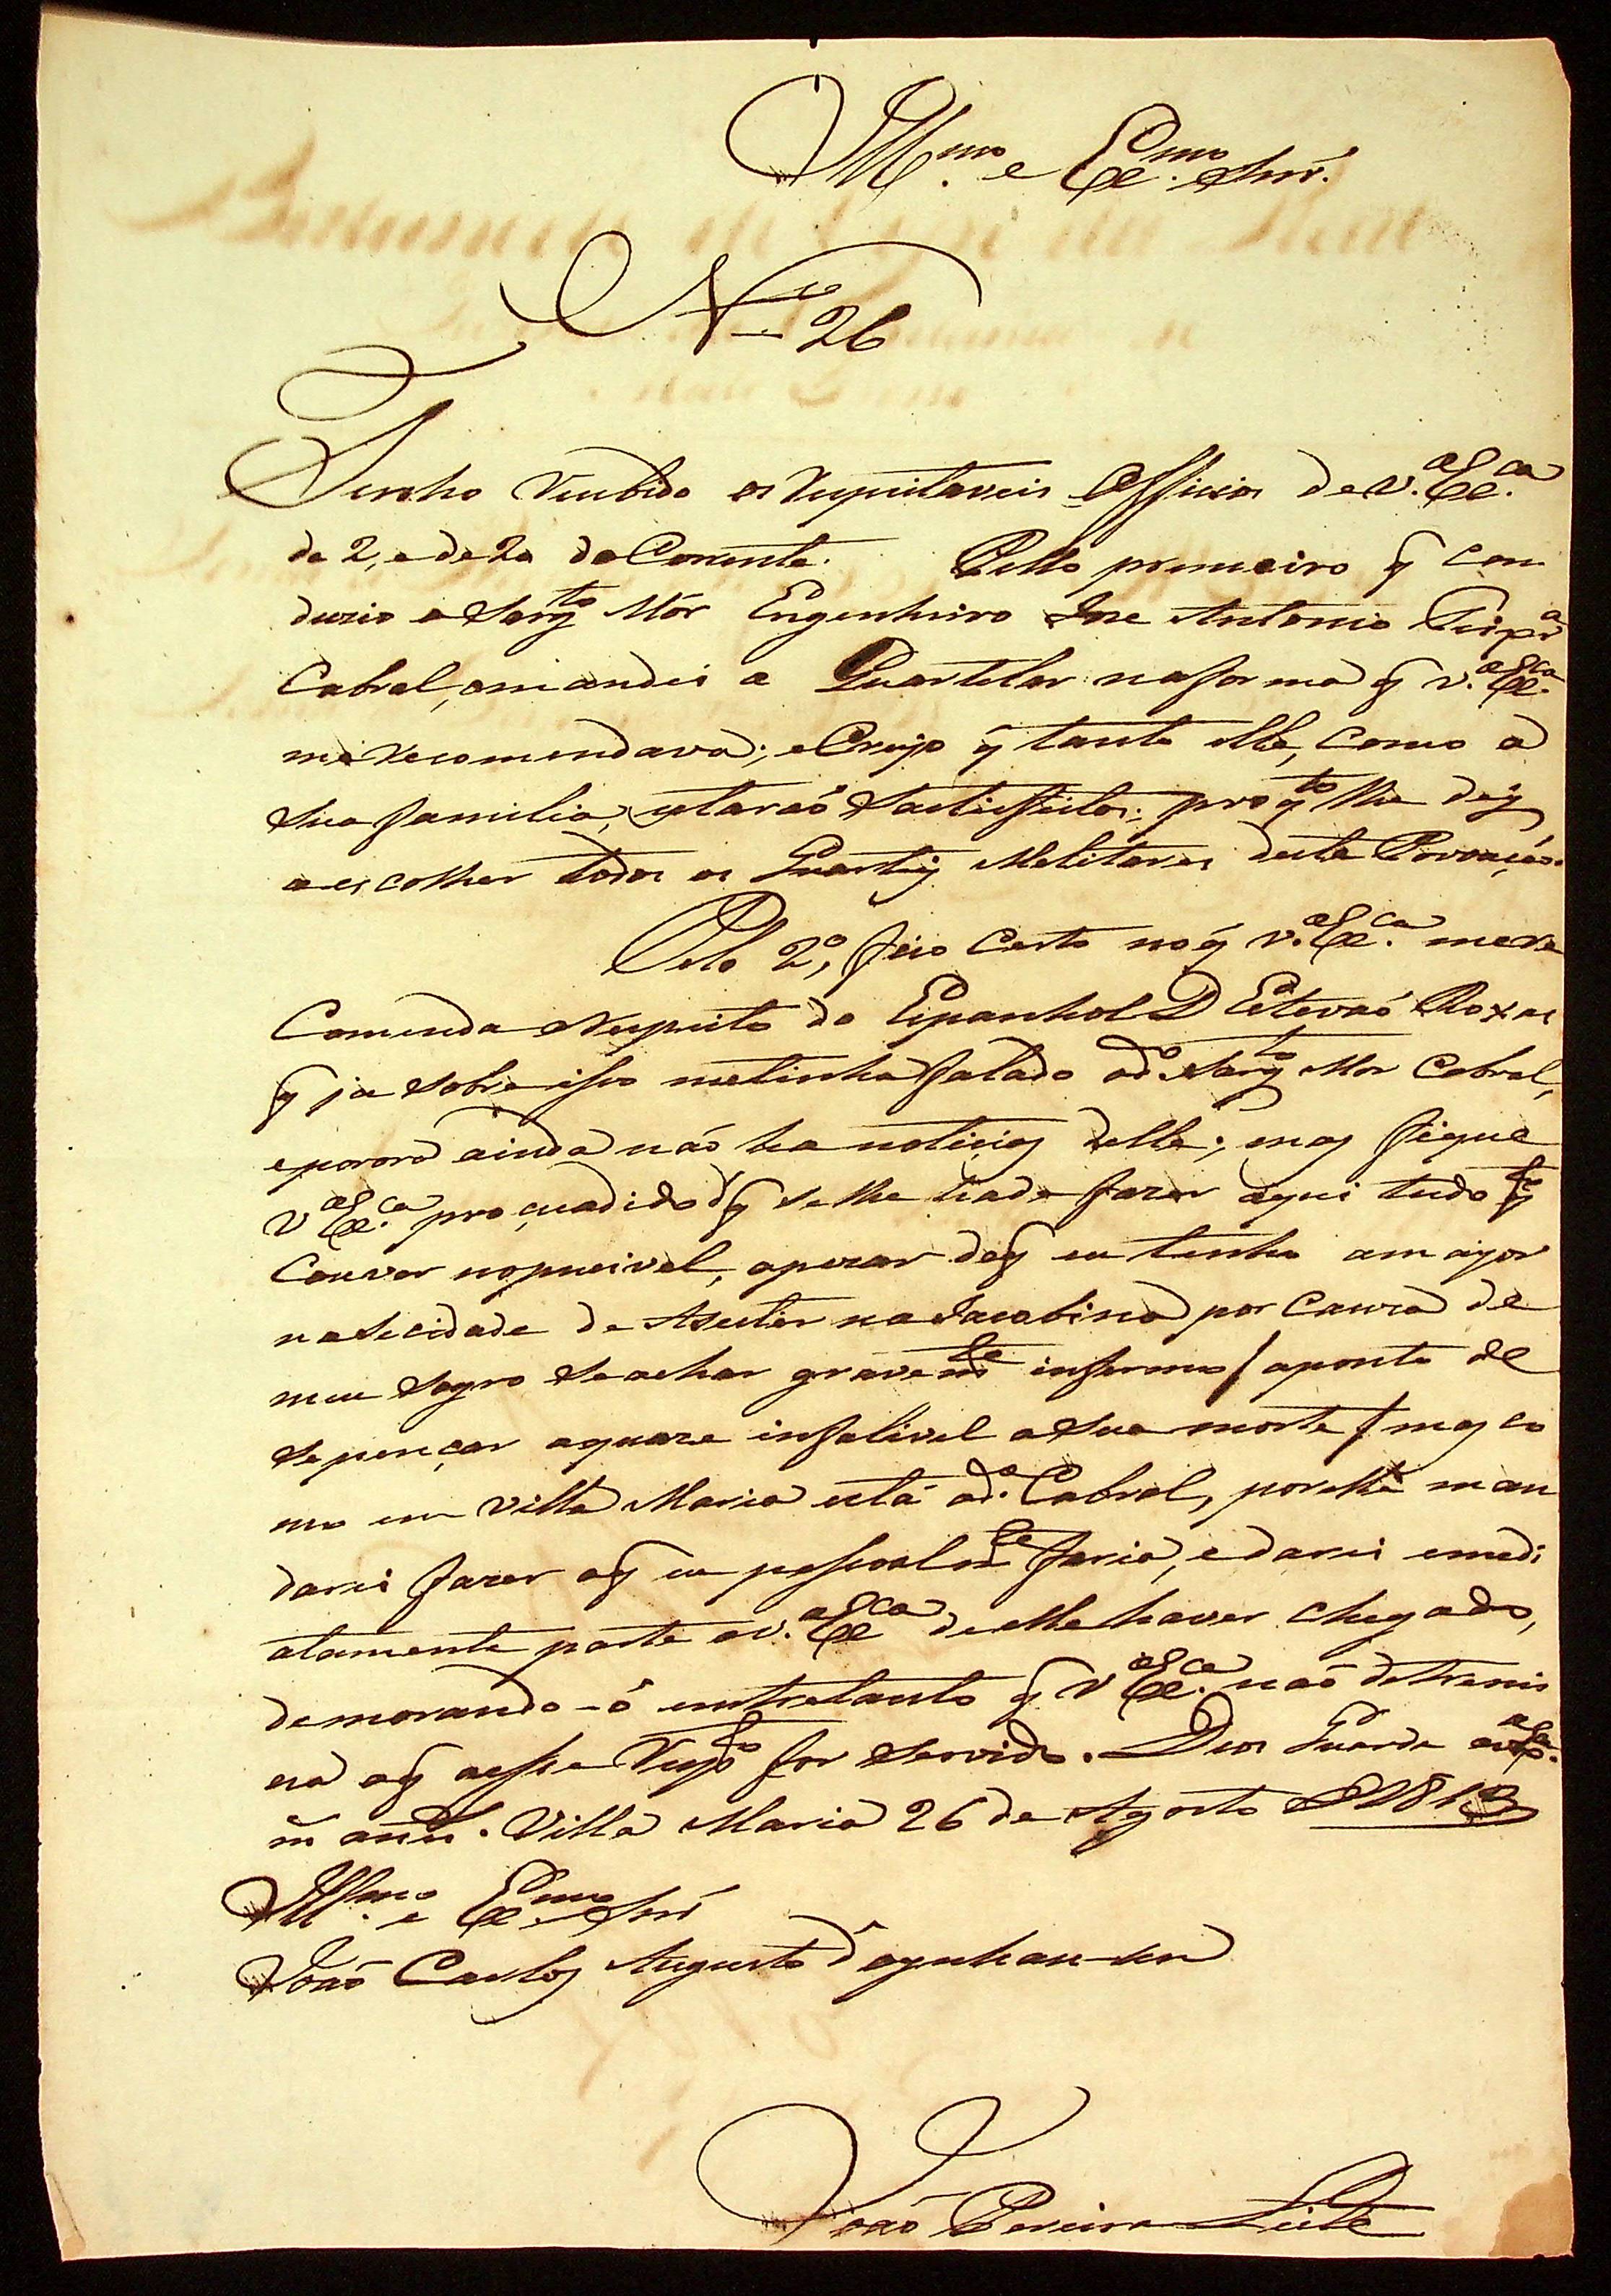 Ill.mo e Ex.mo Snr.
N.o 26
Tenho recebido os respeitaveis Officios de V. Ex.ca
de 2, e de 20 do Corrente. Pello primeiro q̃ con
duzio o Sarg.to Mór Engenheiro Joze Antonio Teix.ra
Cabral, o mandei a Quartelar na forma q̃ V. Ex.ca
me recomendava; e Creijo q̃ tanto elle, como a
sua familia, estaraõ Sastisfeitos; pro q.to lhe dey
a escolher todos os Quarteis Melitares desta Povoação.
Pelo 2.o, fico Certo no q̃ V. Ex.ca me re
Comenda Respeito do Espanhol D Estevaõ Roxas
q̃ ja sobre isso me tinha falado o d.o Sarg.to Mor Cabral,
e porora ainda não ha noticias delle; mas fique
V Ex.ca proçuadido q̃ se lhe hade fazer aqui tudo q.to
Couver no pucivel, apezar de q̃ eu tenha a mayor
nasecidade de Asestir na Jacobina por Cauza de
meu Sogro Se achar gravem.te infermo / aponto de
se pençar a quaze infalivel a sua morte / mas co
mo em Villa Maria está o d.o Cabral, por elle man
darei fazer o q̃ eu pessoalm.te faria, e darei emedi
atamente parte a V. Ex.ca de elle haver chegado,
demorando-ó entretanto q̃ V Ex.ca naõ detremi
na o q̃ a esse Resp.to for Servido. Deos Guarde a V Ex.ca
m.s ann.s. Villa Maria 26 de Agosto de 1813
Ill.mo e Ex.mo Snr
João Carlos Augusto d'Oyenhausen
João Pereira Leite